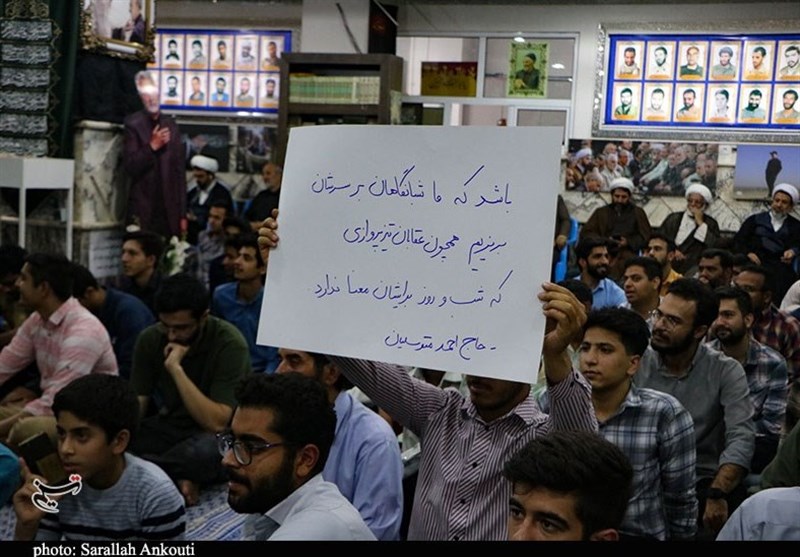 باشد که ما شبانگاهان بر سرتان
بریزیم همچون عقابان تیزپروازی
که شب و روز برایشان معنا ندارد.
- حاج احمد متوسلیان
تسنیم
photo: Sarallah Ankouti